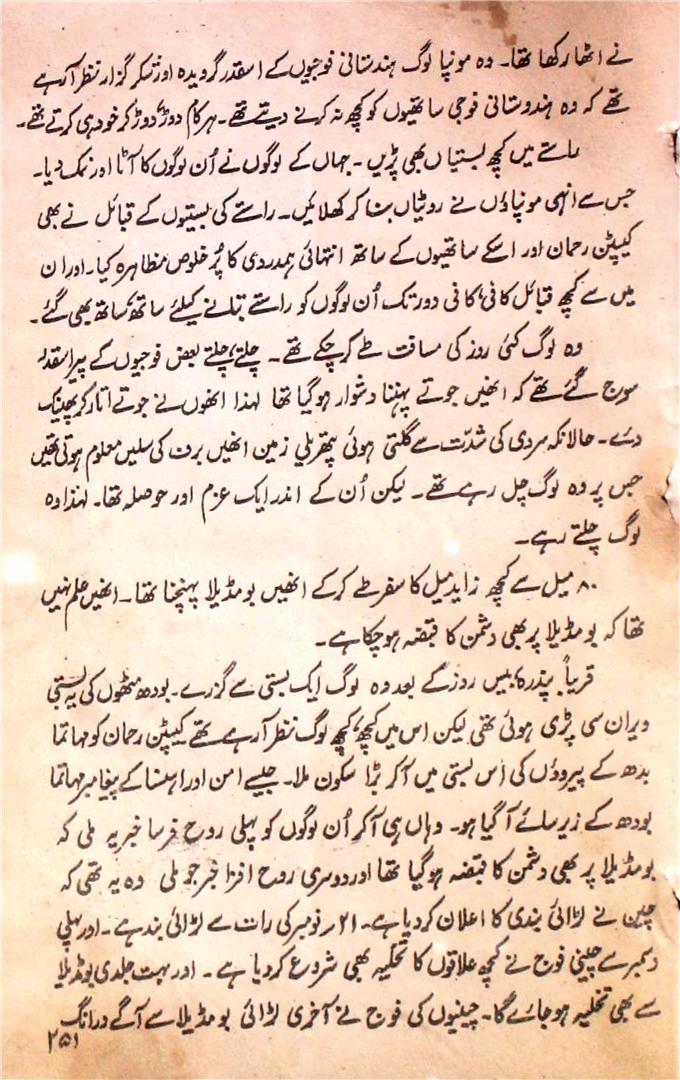 نے اٹھا رکھا تھا۔ وہ مونپا لوگ ہندستانی فوجیوں کے اسقدر گرویدہ اور شکر گزار نظر آرہے
تھے کہ وہ ہندوستانی فوجی ساتھیوں کو کچھ نہ کرنے دیتے تھے۔ ہر کام دوڑ دوڑ کر خود ہی کرتے تھے۔
راستے میں کچھ بستیاں بھی پڑیں۔ جہاں کے لوگوں نے اُن لوگوں کا آٹا اور نمک دیا۔
جس سے انہی مونپاؤں نے روٹیاں بنا کر کھلائیں۔ راستے کی بستیوں کے قبائل نے بھی
کیپٹن رحمان اور اسکے ساتھیوں کے ساتھ انتہائی ہمدردی کا پُر خلوص مظاہرہ کیا۔ اور ان
میں سے کچھ قبائل کافی کافی دور تک اُن لوگوں کو راستے بتانے کیلئے ساتھ ساتھ بھی گئے۔
وہ لوگ کئی روز کی مسافت طے کر چکے تھے۔ چلتے چلتے بعض فوجیوں کے پیر اسقدر
سوج گئے تھے کہ انھیں جوتے پہننا دشوار ہوگیا تھا لہذا انھوں نے جوتے اتار کر پھینک
دئے۔ حالانکہ سردی کی شدّت سے گلتی ہوئی پتھریلی زمین انھیں برف کی سلیں معلوم ہوتی تھیں
جس پر وہ لوگ چل رہے تھے۔ لیکن اُن کے اندر ایک عزم اور حوصلہ تھا۔ لہذا وہ
لوگ چلتے رہے۔
۸۰ میل سے کچھ زاید میل کا سفر طے کرکے انھیں بومڈیلا پہنچنا تھا۔ انھیں علم نہیں
تھا کہ بومڈیلا پر بھی دشمن کا قبضہ ہوچکا ہے۔
قریباً پندرہ بیس روز کے بعد وہ لوگ ایک بستی سے گزرے۔ بودھ مٹھوں کی یہ بستی
ویران سی پڑی ہوئی تھی لیکن اس میں کچھ کچھ لوگ نظر آرہے تھے کیپٹن رحمان کو مہاتما
بدھ کے پیرؤں کی اس بستی میں آکر بڑا سکون ملا۔ جیسے امن اور اہنسا کے پیغامبر مہاتما
بودھ کے زیر سائے آگیا ہو۔ وہاں ہی آکر اُن لوگوں کو پہلی روح فرسا خبر یہ ملی کہ
بومڈیلا پر بھی دشمن کا قبضہ ہوگیا تھا اور دوسری روح افزا خبر جو ملی وہ یہ تھی کہ
چین نے لڑائی بندی کا اعلان کردیا ہے۔ ۲۱ر نومبر کی رات سے لڑائی بند ہے۔ اور پہلی
دسمبر سے چینی فوج نے کچھ علاقوں کا تخلیہ بھی شروع کردیا ہے۔ اور بہت جلدی بومڈیلا
سے بھی تخلیہ ہو جائے گا۔ چینیوں کی فوج نے آخری لڑائی بومڈیلا سے آگے درانگ
۲۵۱